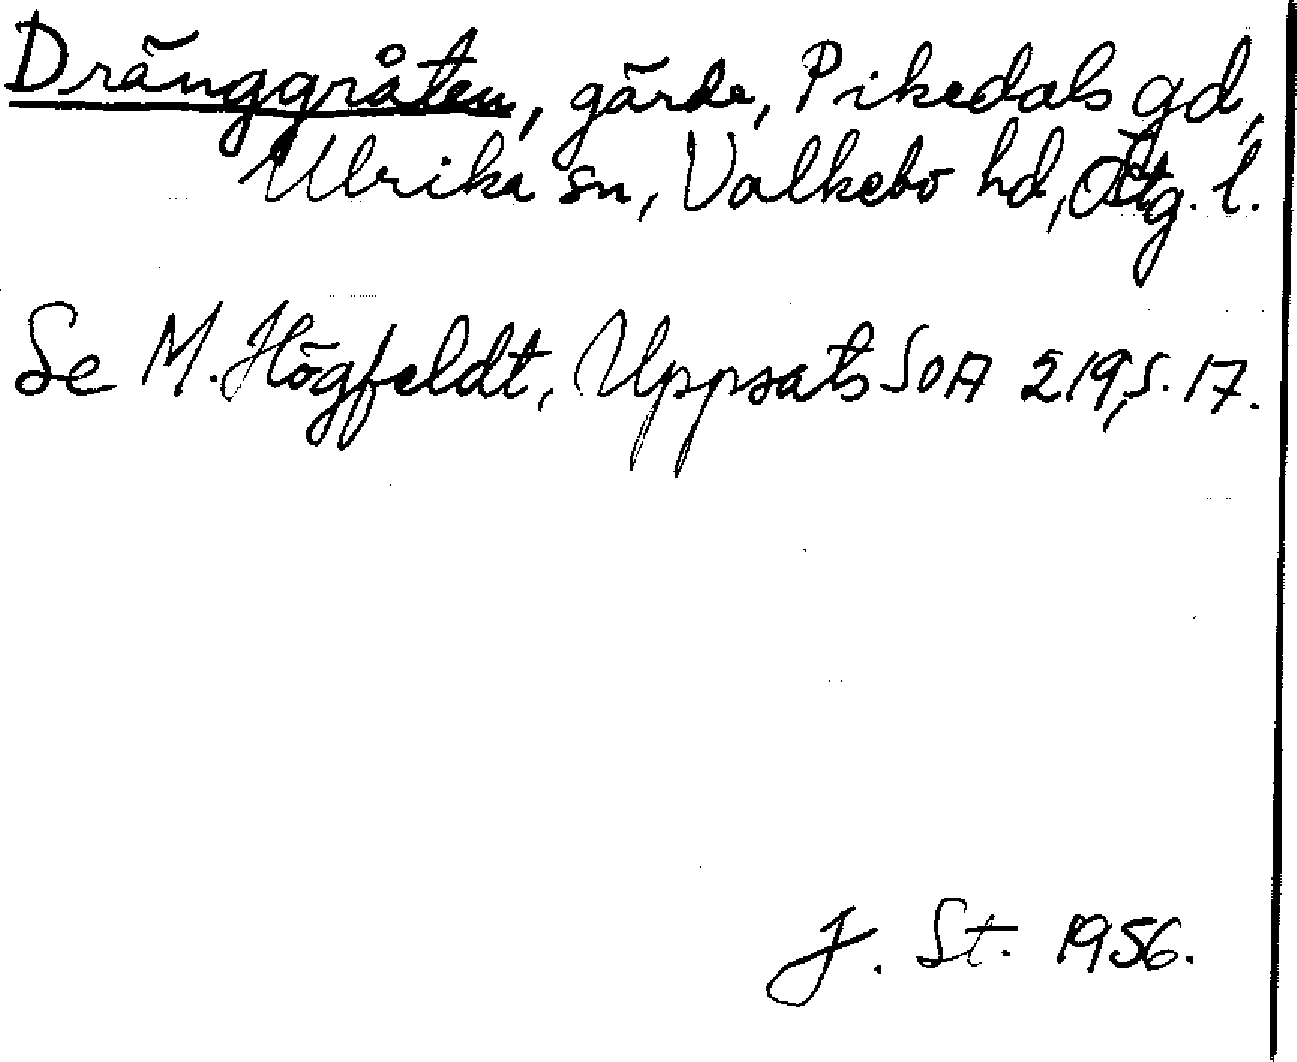 Dränggråten, gärde, Pikedals gd,
Ulrika sn, Valkebo hd, Östg. l.
Se M. Högfeldt, Uppsats SOA 219, s. 17.
J. St. 1956.